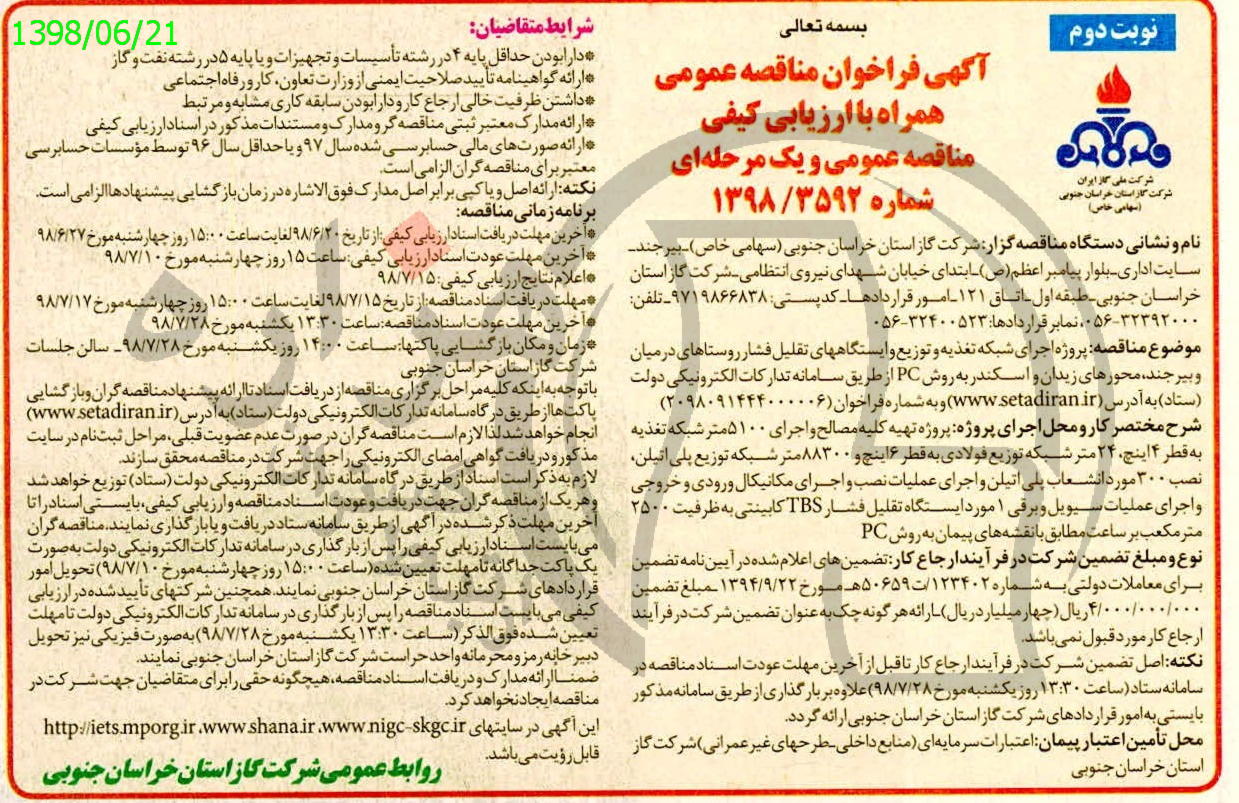 1398/06/21
نوبت دوم
شرکت ملی گاز ایران
شرکت گاز استان خراسان جنوبی
(سهامی خاص)
بسمه تعالی
آگهی فراخوان مناقصه عمومی
همراه با ارزیابی کیفی
مناقصه عمومی و یک مرحله‌ای
شماره ۱۳۹۸/۳۵۹۲
نام و نشانی دستگاه مناقصه گزار: شرکت گاز استان خراسان جنوبی (سهامی خاص)ـ بیرجندـ
سـایت اداری ـ بلوار پیامبر اعظم(ص)ـ ابتدای خیابان شـهدای نیروی انتظامی ـ شرکت گاز استان
خراسـان جنوبی ـ طبقه اول ـ اتـاق ۱۲۱ ـ امـور قراردادهـا ـ کدپستی: ۹۷۱۹۸۶۶۸۳۸ ـ تلفن:
۰۵۶-۳۲۳۹۲۰۰۰، نمابر قراردادها: ۳۲۴۰۰۵۲۳-۰۵۶
موضوع مناقصه: پروژه اجرای شبکه تغذیه و توزیع و ایستگاههای تقلیل فشار روستاهای درمیان
و بیرجند، محورهای زیدان و اسـکندر به روش PC از طریق سـامانه تدارکات الکترونیکی دولت
(ستاد) به آدرس (www.setadiran.ir) و به شماره فراخوان (۲۰۹۸۰۹۱۴۴۴۰۰۰۰۰۶)
شرح مختصر کار و محل اجرای پروژه: پروژه تهیه کلیه مصالح و اجرای ۵۱۰۰ متر شبکه تغذیه
به قطر ۴ اینچ، ۲۴ متر شـبکه توزیع فولادی به قطر ۶ اینچ و ۸۸۳۰۰ متر شـبکه توزیع پلی اتیلن،
نصب ۳۰۰ مورد انشعاب پلی اتیلن و اجرای عملیات نصب و اجـرای مکانیکال ورودی و خروجی
و اجرای عملیات سـیویل و برقی ۱ مورد ایستگاه تقلیل فشـار TBS کابینتی به ظرفیت ۲۵۰۰
متر مکعب بر ساعت مطابق با نقشه های پیمان به روش PC
نوع و مبلغ تضمین شرکت در فرآیند ارجاع کار: تضمین های اعلام شده در آیین نامه تضمین
بـرای معاملات دولتی بـه شـماره ۱۲۳۴۰۲/ت۵۰۶۵۹هـ مـورخ ۱۳۹۴/۹/۲۲ ـ مبلغ تضمین
۴/۰۰۰/۰۰۰/۰۰۰ ریال (چهار میلیارد ریال) ـ ارائه هر گونه چک به عنوان تضمین شرکت در فرآیند
ارجاع کار مورد قبول نمی باشد.
نکته: اصل تضمین شـرکت در فرآیند ارجاع کار تا قبل از آخرین مهلت عودت اسـناد مناقصه در
سامانه ستاد (ساعت ۱۳:۳۰ روز یکشنبه مورخ ۹۸/۷/۲۸) علاوه بر بارگذاری از طریق سامانه مذکور
بایستی به امور قراردادهای شرکت گاز استان خراسان جنوبی ارائه گردد.
محل تأمین اعتبار پیمان: اعتبارات سرمایه ای (منابع داخلی ـ طرحهای غیر عمرانی) شرکت گاز
استان خراسان جنوبی
شرایط متقاضیان:
*دارا بودن حداقل پایه ۴ در رشته تأسیسات و تجهیزات و یا پایه ۵ در رشته نفت و گاز
*ارائه گواهینامه تأیید صلاحیت ایمنی از وزارت تعاون، کار و رفاه اجتماعی
*داشتن ظرفیت خالی ارجاع کار و دارا بودن سابقه کاری مشابه و مرتبط
*ارائه مدارک معتبر ثبتی مناقصه گر و مدارک و مستندات مذکور در اسناد ارزیابی کیفی
*ارائه صورت های مالی حسابرسـی شده سال ۹۷ و یا حداقل سال ۹۶ توسط مؤسسات حسابرسی
معتبر برای مناقصه گران الزامی است.
نکته: ارائه اصل و یا کپی برابر اصل مدارک فوق الاشاره در زمان بازگشایی پیشنهادها الزامی است.
برنامه زمانی مناقصه:
*آخرین مهلت دریافت اسناد ارزیابی کیفی: از تاریخ ۹۸/۶/۲۰ لغایت ساعت ۱۵:۰۰ روز چهارشنبه مورخ ۹۸/۶/۲۷
*آخرین مهلت عودت اسناد ارزیابی کیفی: ساعت ۱۵ روز چهارشنبه مورخ ۹۸/۷/۱۰
*اعلام نتایج ارزیابی کیفی: ۹۸/۷/۱۵
*مهلت دریافت اسناد مناقصه: از تاریخ ۹۸/۷/۱۵ لغایت ساعت ۱۵:۰۰ روز چهارشنبه مورخ ۹۸/۷/۱۷
*آخرین مهلت عودت اسناد مناقصه: ساعت ۱۳:۳۰ یکشنبه مورخ ۹۸/۷/۲۸
*زمان و مکان بازگشـایی پاکتها: سـاعت ۱۴:۰۰ روز یکشـنبه مورخ ۹۸/۷/۲۸ ـ سالن جلسات
شرکت گاز استان خراسان جنوبی
با توجه به اینکه کلیه مراحل برگزاری مناقصه از دریافت اسناد تا ارائه پیشنهاد مناقصه گران و بازگشایی
پاکت ها از طریق درگاه سامانه تدارکات الکترونیکی دولت (ستاد) به آدرس (www.setadiran.ir)
انجام خواهد شد لذا لازم اسـت مناقصه گران در صورت عدم عضویت قبلی، مراحل ثبت نام در سایت
مذکور و دریافت گواهی امضای الکترونیکی را جهت شرکت در مناقصه محقق سازند.
لازم به ذکر است اسناد از طریق درگاه سامانه تدارکات الکترونیکی دولت (ستاد) توزیع خواهد شد
و هر یک از مناقصه گران جهت دریافت و عودت اسـناد مناقصه و ارزیابی کیفی، بایسـتی اسناد را تا
آخرین مهلت ذکر شـده در آگهی از طریق سامانه ستاد دریافت و یا بارگذاری نمایند. مناقصه گران
می بایست اسـناد ارزیابی کیفی را پس از بارگذاری در سامانه تدارکات الکترونیکی دولت به صورت
یک پاکت جداگانه تا مهلت تعیین شده (ساعت ۱۵:۰۰ روز چهارشنبه مورخ ۹۸/۷/۱۰) تحویل امور
قراردادهای شـرکت گاز استان خراسان جنوبی نمایند. همچنین شرکتهای تأیید شده در ارزیابی
کیفی می بایست اسـناد مناقصه را پس از بارگذاری در سامانه تدارکات الکترونیکی دولت تا مهلت
تعیین شـده فوق الذکر (سـاعت ۱۳:۳۰ یکشـنبه مورخ ۹۸/۷/۲۸) به صورت فیزیکی نیز تحویل
دبیرخانه رمز و محرمانه واحد حراست شرکت گاز استان خراسان جنوبی نمایند.
ضمنـاً ارائه مدارک و دریافت اسـناد مناقصه، هیچگونه حقی را برای متقاضیان جهت شـرکت در
مناقصه ایجاد نخواهد کرد.
این آگهی در سایتهای http://iets.mporg.ir ،www.shana.ir ،www.nigc-skgc.ir
قابل رؤیت می باشد.
روابط عمومی شرکت گاز استان خراسان جنوبی